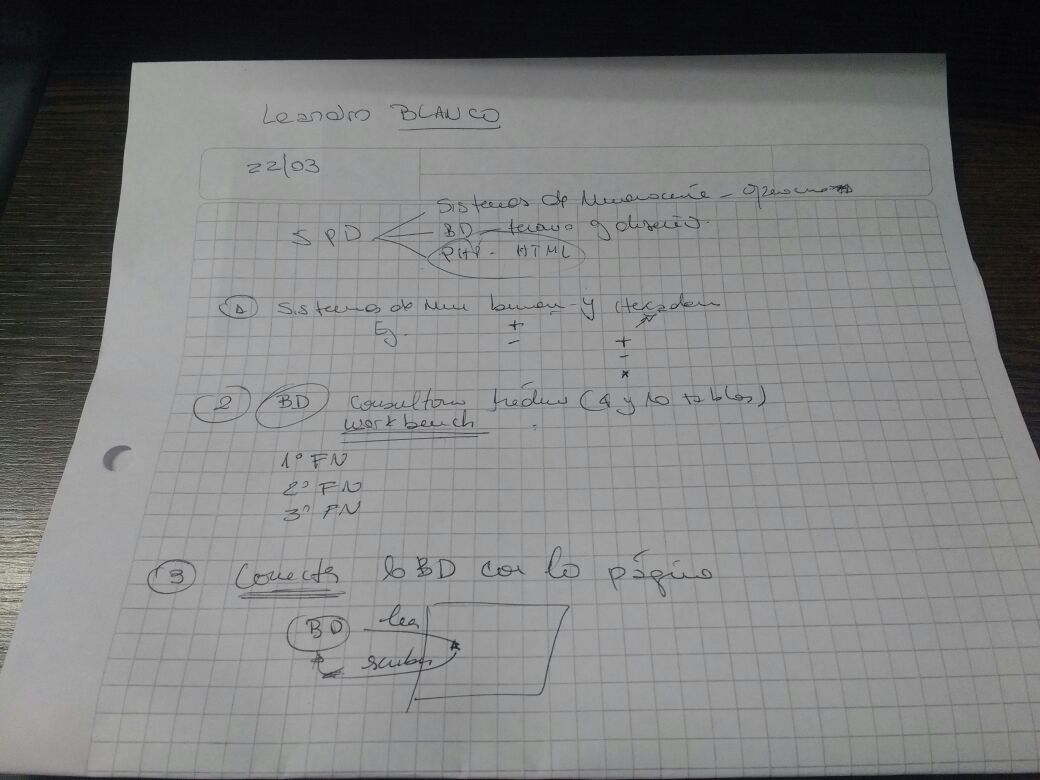 Leandro BLANCO
22/03
Sistemas de Numeración - operaciones
SPD BD - teoria y diseño.
PHP - HTML
1 Sistemas de Num binari - y Hexadeci
Ej. +
-
+
-
*
2 BD Consultorio Médico (9 y 10 tablas)
Workbench
1º FN
2º FN
3º FN
3 Conectar la BD con la página
BD lea